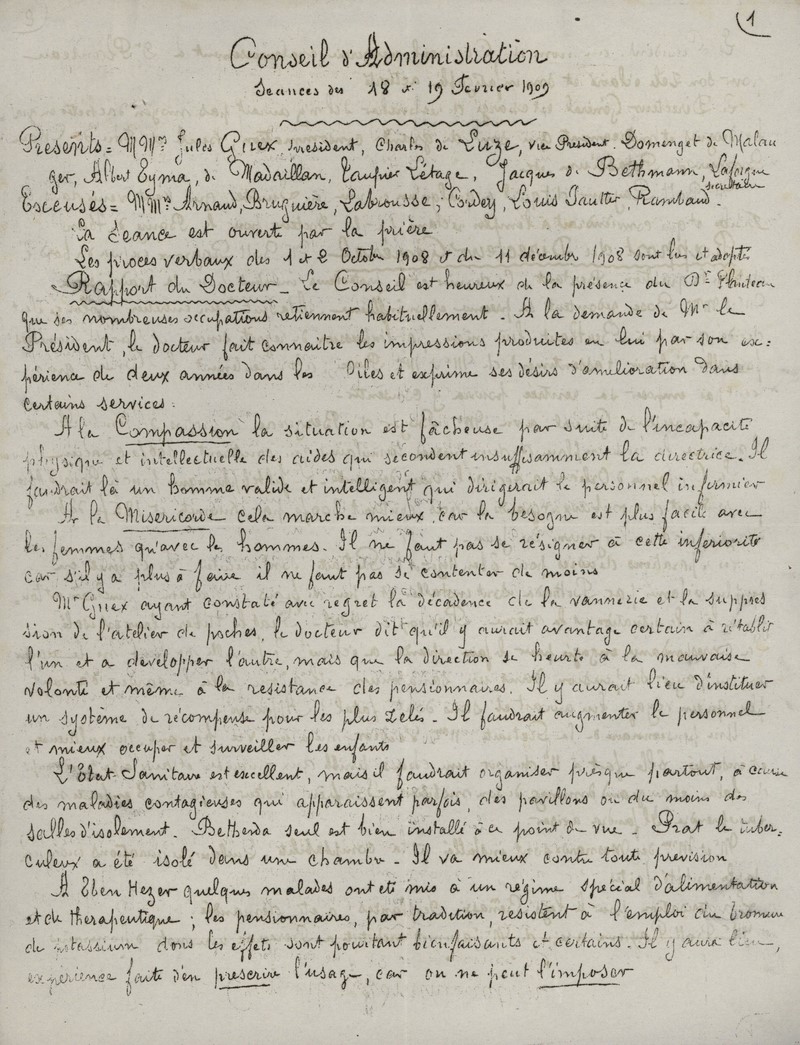 1
Conseil d'Administration
Seances des 18 et 19 Fevrier 1909
Presents = MMrs Jules Guex president, Charles de Luze, vice President. Domenget de Malau
ger, Albert Eyma, de Madaillan, Taupier Létage, Jacques de Bethmann, Laforgue
secretaire
Excusés = MMrs Arnaud, Bruguière, Labrousse, Cordey, Louis Gaultier, Rambaud.
La Seance est ouverte par la prière
Les proces verbaux des 1 et 2 Octobre 1908 et du 11 décembre 1908 sont lus et adoptés
Rapport du Docteur - Le Conseil est heureux de la présence du Dr
que ses nombreuses occupations retiennent habituellement. A la demande de Mr le
Président, le docteur fait connaitre les impressions produites en lui par son ex=
périence de deux années dans les Asiles et exprime ses désirs d'amelioration dans
certains services.
A la Compassion la situation est fâcheuse par suite de l'incapacité
physique et intellectuelle des aides qui secondent insuffisamment la directrice. Il
faudrait là un homme valide et intelligent qui dirigerait le personnel infirmier
A la Misericorde cela marche mieux, car la besogne est plus facile avec
les femmes qu'avec les hommes. Il ne faut pas se résigner à cette inferiorité
car s'il y a plus à faire il ne faut pas se contenter de moins
Mr Guex ayant constaté avec regret la décadence de la vannerie et la suppres
sion de l'atelier de poches, le docteur dit qu'il y aurait avantage certain à rétablir
l'un et a developper l'autre, mais que la direction se heurte à la mauvaise
volonté et même à la resistance des pensionnaires. Il y aurait lieu d'instituer
un système de récompense pour les plus zelés. Il faudrait augmenter le personnel
et mieux occuper et surveiller les enfants
L'Etat Sanitaire est excellent, mais il faudrait organiser presque partout, à cause
des maladies contagieuses qui apparaissent parfois, des pavillons ou du moins des
salles d'isolement. Bethesda seul est bien installé à ce point de vue - Prat le tuber=
culeux a été isolé dans une chambre - Il va mieux contre toute prevision
A Eben Hezer quelques malades ont été mis à un régime special d'alimentation
et de therapeutique ; les pensionnaires, par tradition, resistent à l'emploi du bromure
de potassium dont les effets sont pourtant bienfaisants et certains. Il y aura lieu,
experience faite d'en prescrire l'usage, car on ne peut l'imposer